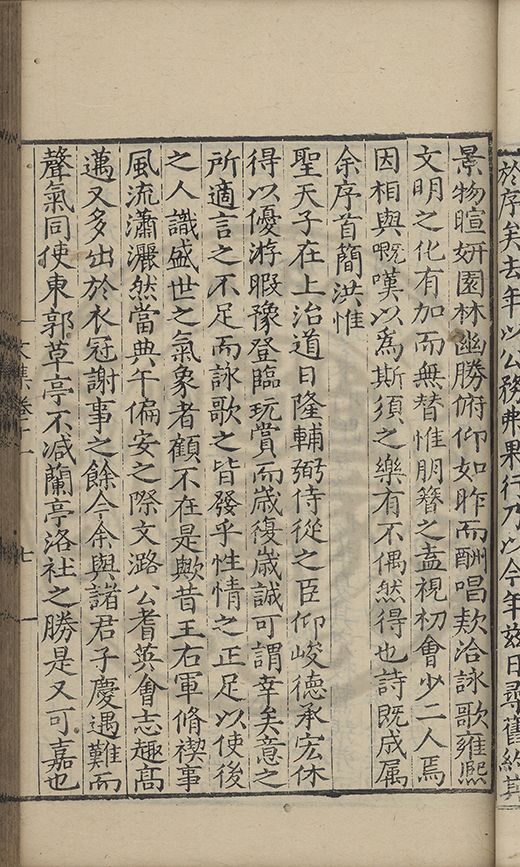 於序矣去年以公務弗果行乃以今年茲日尋舊約其
景物暄妍園林幽勝俯仰如昨而酬唱欵洽詠歌雍熙
文明之化有加而無替惟朋簪之盍視初會少二人焉
因相與嘅嘆以為斯須之樂有不偶然得也詩既成属
余序首簡洪惟
聖天子在上治道日隆輔弼侍從之臣仰峻德承宏休
得以優游暇豫登臨玩賞而歳復歳誠可謂幸矣意之
所適言之不足而詠歌之皆發乎性情之正足以使後
之人識盛世之氣象者顧不在是歟昔王右軍脩禊事
風流瀟灑然當典午偏安之際文潞公耆英會志趣髙
邁又多出於衣冠謝事之餘今余與諸君子慶遇難而
聲氣同使東郭草亭不减蘭亭洛社之勝是又可嘉也
文集卷十一
七